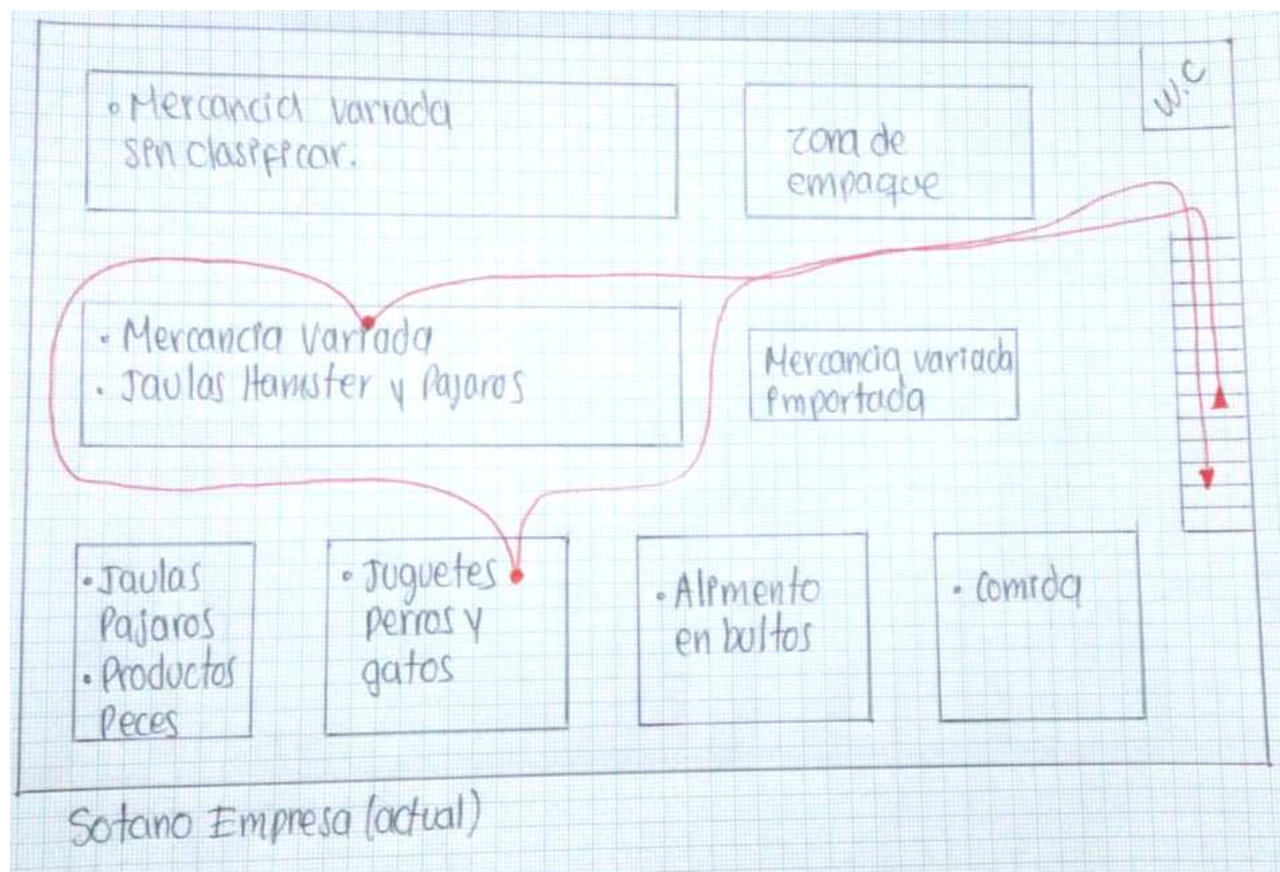 • Mercancia variada
sin clasificar.
zona de
empaque
W.C
• Mercancia Variada
• Jaulas Hamster y Pajaros
Mercancia variada
importada
• Jaulas
Pajaros
• Productos
Peces
• Juguetes
perros y
gatos
• Alimento
en bultos
• Comida
Sotano Empresa (actual)